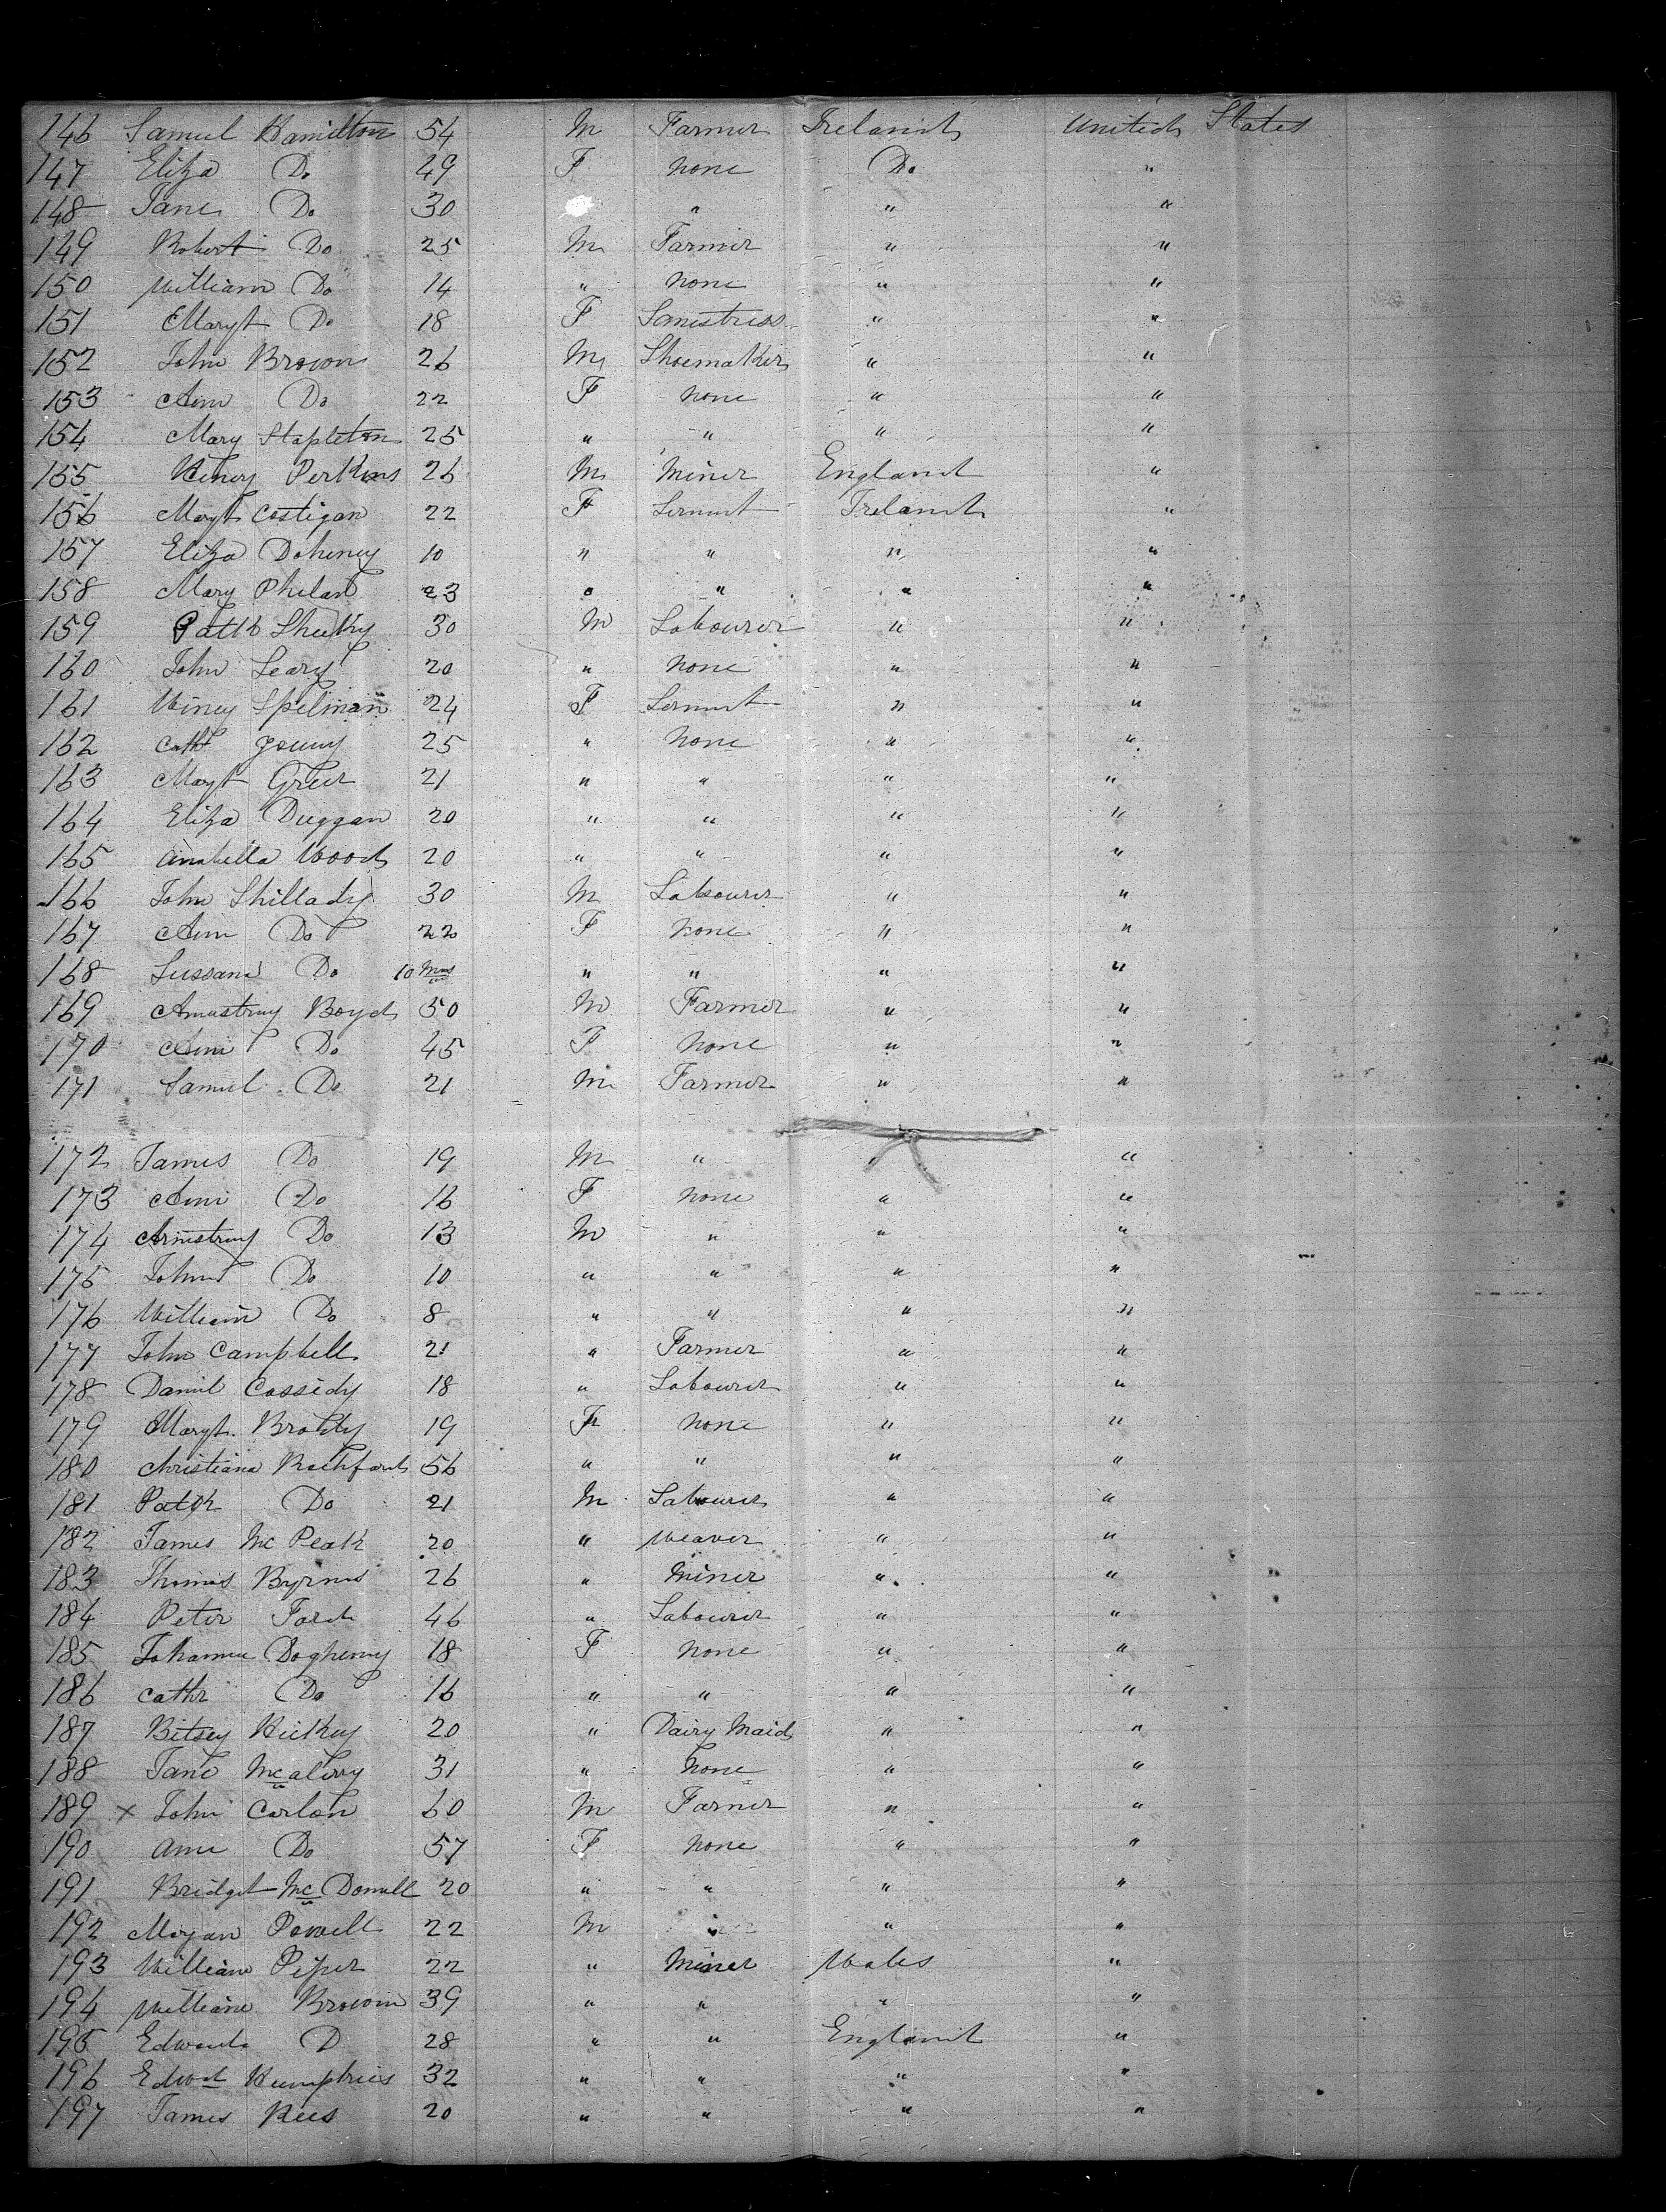 146 Samuel Hamilton 54 M Farmer Ireland United States
147 Eliza Do 49 F none Do "
148 Jane Do 30 " " "
149 Robert Do 25 M Farmer " "
150 William Do 14 " none " "
151 Margt Do 18 F Samstriss " "
152 John Brown 26 M Shoemaker " "
153 Ann Do 22 F none " "
154 Mary Stapleton 25 " " " "
155 Henry Perkins 26 M Miner England "
156 Margt Costigan 22 F Servant Ireland "
157 Eliza Doheney 10 " " " "
158 Mary Phelan 23 " " " "
159 Pattk Sheehy 30 M Labourer " "
160 John Leary 20 " none " "
161 Winey Spelman 24 F Servant " "
162 Cath 25 " none " "
163 Margt Greer 21 " " " "
164 Eliza Duggan 20 " " " "
165 Anabella Wood 20 " " " "
166 John Shillady 30 M Labourer " "
167 Ann Do 22 F none " "
168 Sussana Do 10 Mos " " " "
169 Armstrong Boyd 50 M Farmer " "
170 Ann Do 45 F none " "
171 Samuel Do 21 M Farmer " "
172 James Do 19 M " " "
173 Ann Do 16 F none " "
174 Armstrong Do 13 M " " "
175 John Do 10 " " " "
176 William Do 8 " " " "
177 John Campbell 21 " Farmer " "
178 Daniel Cassidy 18 " Labourer " "
179 Margt. Brady 19 F none " "
180 Christiana Rochford 56 " " " "
181 Patk Do 21 M Labourer " "
182 James Mc Peak 20 " Weaver " "
183 Thomas Byrnes 26 " Miner " "
184 Peter Ford 46 " Labourer " "
185 Johanna Doghenny 18 F none " "
186 Cathr Do 16 " " " "
187 Bitsey Hickey 20 " Dairy Maid " "
188 Jane 31 " None " "
189 x John Carlon 60 M Farmer " "
190 Ann Do 57 F none " "
191 Bridget Mc Donnell 20 " " " "
192 Morgan Powell 22 M " " "
193 William Piper 22 " Miner Wales "
194 William Brown 39 " " " "
195 Edward D 28 " " England "
196 Edwd Humphries 32 " " " "
197 James Rees 20 " " " "